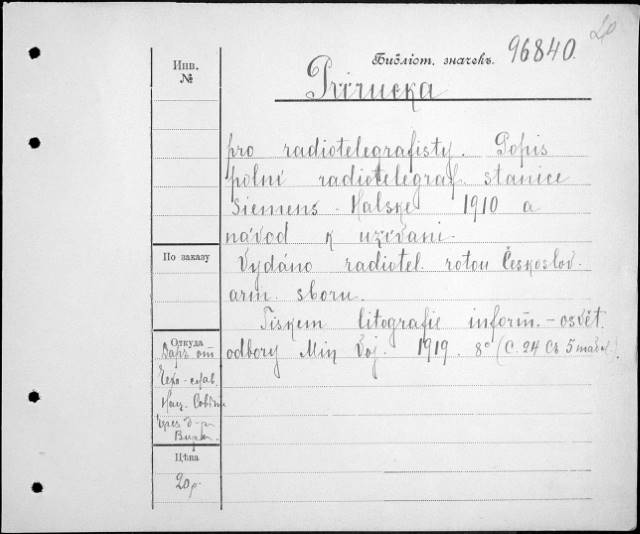 20
Библіот. значекъ. 96840.
Инв.
№
Příručka
pro radiotelegrafisty. Popis
polní radiotelegraf. stanice
Siemens-Halske 1910 a
návod k užívání.
По заказу
Vydáno radiotel. rotou Českoslov.
arm. sboru.
Tiskem litografie inform.-osvět.
Откуда
Даръ от odbory Min. Voj. 1919. 8° (С. 24 съ 5 табл.)
Чехо-слав.
Нац. Совѣта
Через д-р
Цѣна
20р.